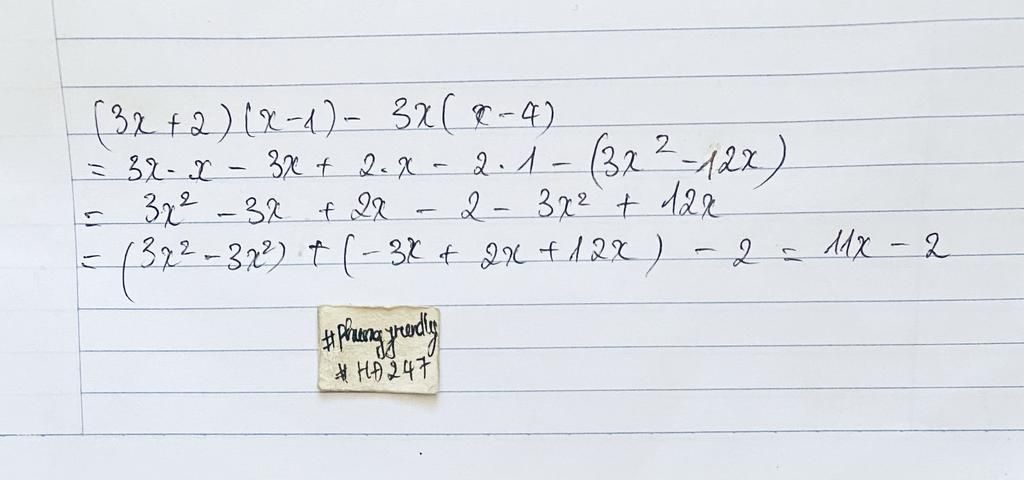 (3x + 2)(x - 1) - 3x(x - 4)
= 3x . x - 3x + 2 . x - 2 . 1 - (3x² - 12x)
= 3x² - 3x + 2x - 2 - 3x² + 12x
= (3x² - 3x²) + (-3x + 2x + 12x) - 2 = 11x - 2
# HA247